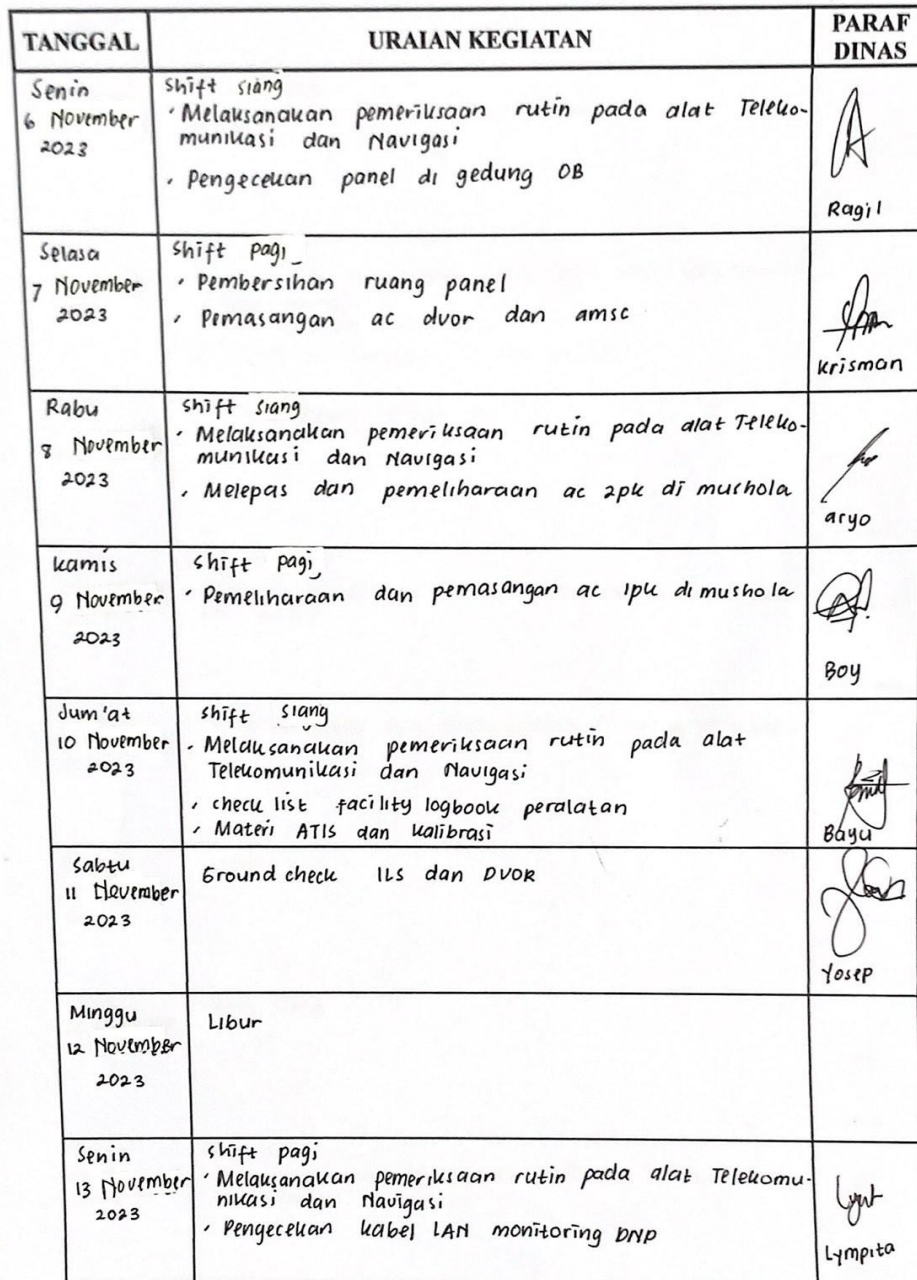 TANGGAL URAIAN KEGIATAN PARAF DINAS
Senin
6 November
2023
Shift siang
· Melaksanakan pemeriksaan rutin pada alat Teleko-
munikasi dan Navigasi
· Pengecekan panel di gedung OB
Ragil
Selasa
7 November
2023
Shift pagi
· Pembersihan ruang panel
· Pemasangan ac dvor dan amsc
Krisman
Rabu
8 November
2023
Shift siang
· Melaksanakan pemeriksaan rutin pada alat Teleko-
munikasi dan Navigasi
· Melepas dan pemeliharaan ac 2pk di mushola
aryo
Kamis
9 November
2023
Shift pagi
· Pemeliharaan dan pemasangan ac 1pk di mushola
Boy
Jum'at
10 November
2023
Shift siang
· Melaksanakan pemeriksaan rutin pada alat
Telekomunikasi dan Navigasi
· check list facility logbook peralatan
· Materi ATIS dan kalibrasi
Bayu
Sabtu
11 November
2023
Ground check ILS dan DVOR
Yosep
Minggu
12 November
2023
Libur
Senin
13 November
2023
Shift pagi
· Melaksanakan pemeriksaan rutin pada alat Telekomu-
nikasi dan Navigasi
· Pengecekan kabel LAN monitoring DNP
Lympita